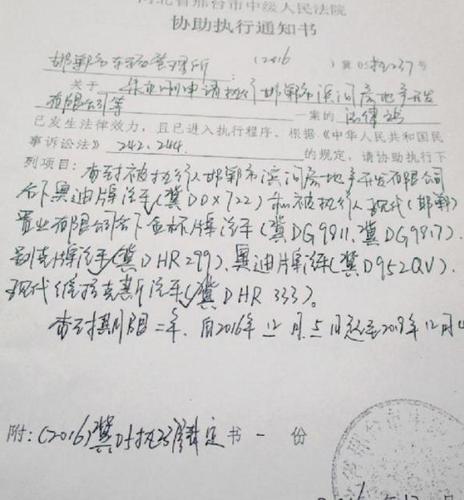 河北省邢台市中级人民法院
协助执行通知书
邯郸市车辆管理所 (2016)冀05执237号
关于 申请执行邯郸市滨河房地产开发
有限公司等 一案的法律
已发生法律效力，且已进入执行程序。根据《中华人民共和国民
事诉讼法》242、244 的规定，请协助执行下
列项目：查封被执行人邯郸市滨河房地产开发有限公司
名下奥迪牌汽车(冀D0X722)和被执行人现代(邯郸)
置业有限公司名下金杯牌汽车(冀DG9811、冀DG9817)、
别克牌汽车(冀DHR299)、奥迪牌汽车(冀D952QV)、
现代维拉克斯汽车(冀DHR333)。
查封期限二年，自2016年12月5日起至2018年12月4
附：(2016)冀05执237号裁定书一份